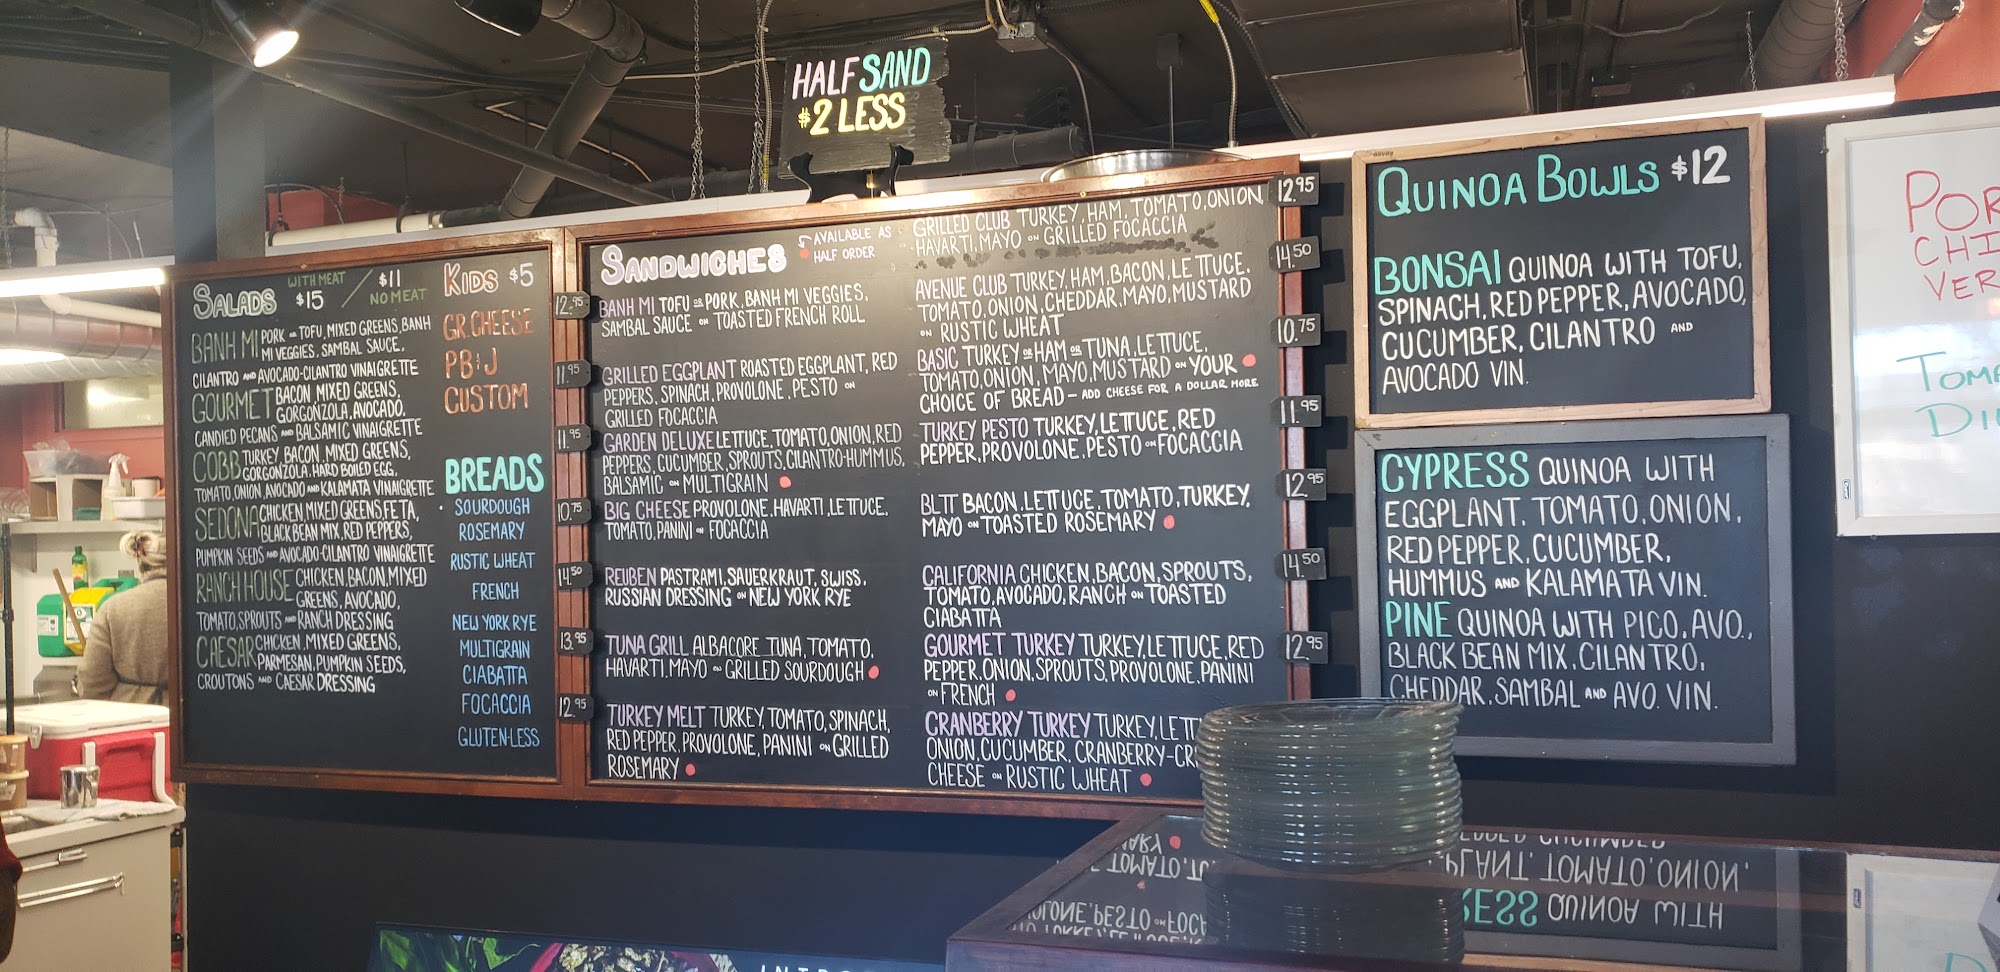 HALF SAND
$2 LESS
SALADS WITH MEAT $15 / $11 NO MEAT
BANH MI PORK OR TOFU, MIXED GREENS, BANH
MI VEGGIES, SAMBAL SAUCE,
CILANTRO AND AVOCADO-CILANTRO VINAIGRETTE
GOURMET BACON, MIXED GREENS,
GORGONZOLA, AVOCADO,
CANDIED PECANS AND BALSAMIC VINAIGRETTE
COBB TURKEY, BACON, MIXED GREENS,
GORGONZOLA, HARD BOILED EGG,
TOMATO, ONION, AVOCADO AND KALAMATA VINAIGRETTE
SEDONA CHICKEN, MIXED GREENS, FETA,
BLACK BEAN MIX, RED PEPPERS,
PUMPKIN SEEDS AND AVOCADO-CILANTRO VINAIGRETTE
RANCH HOUSE CHICKEN, BACON, MIXED
GREENS, AVOCADO,
TOMATO, SPROUTS AND RANCH DRESSING
CAESAR CHICKEN, MIXED GREENS,
PARMESAN, PUMPKIN SEEDS,
CROUTONS AND CAESAR DRESSING
KIDS $5
GR. CHEESE
PB&J
CUSTOM
BREADS
SOURDOUGH
ROSEMARY
RUSTIC WHEAT
FRENCH
NEW YORK RYE
MULTIGRAIN
CIABATTA
FOCACCIA
GLUTEN-LESS
SANDWICHES
AVAILABLE AS
HALF ORDER
12.95
BANH MI TOFU OR PORK, BANH MI VEGGIES,
SAMBAL SAUCE ON TOASTED FRENCH ROLL
11.95
GRILLED EGGPLANT ROASTED EGGPLANT, RED
PEPPERS, SPINACH, PROVOLONE, PESTO ON
GRILLED FOCACCIA
11.95
GARDEN DELUXE LETTUCE, TOMATO, ONION, RED
PEPPERS, CUCUMBER, SPROUTS, CILANTRO-HUMMUS,
BALSAMIC ON MULTIGRAIN
10.75
BIG CHEESE PROVOLONE, HAVARTI, LETTUCE,
TOMATO, PANINI ON FOCACCIA
14.50
REUBEN PASTRAMI, SAUERKRAUT, SWISS,
RUSSIAN DRESSING ON NEW YORK RYE
13.95
TUNA GRILL ALBACORE TUNA, TOMATO,
HAVARTI, MAYO ON GRILLED SOURDOUGH
12.95
TURKEY MELT TURKEY, TOMATO, SPINACH,
RED PEPPER, PROVOLONE, PANINI ON GRILLED
ROSEMARY
GRILLED CLUB TURKEY, HAM, TOMATO, ONION, 12.95
HAVARTI, MAYO ON GRILLED FOCACCIA
14.50
AVENUE CLUB TURKEY, HAM, BACON, LETTUCE,
TOMATO, ONION, CHEDDAR, MAYO, MUSTARD
ON RUSTIC WHEAT
10.75
BASIC TURKEY OR HAM OR TUNA, LETTUCE,
TOMATO, ONION, MAYO, MUSTARD ON YOUR
CHOICE OF BREAD - ADD CHEESE FOR A DOLLAR MORE
11.95
TURKEY PESTO TURKEY, LETTUCE, RED
PEPPER, PROVOLONE, PESTO ON FOCACCIA
12.95
BLTT BACON, LETTUCE, TOMATO, TURKEY,
MAYO ON TOASTED ROSEMARY
14.50
CALIFORNIA CHICKEN, BACON, SPROUTS,
TOMATO, AVOCADO, RANCH ON TOASTED
CIABATTA
12.95
GOURMET TURKEY TURKEY, LETTUCE, RED
PEPPER, ONION, SPROUTS, PROVOLONE, PANINI
ON FRENCH
CRANBERRY TURKEY TURKEY, LETT
ONION, CUCUMBER, CRANBERRY-CR
CHEESE ON RUSTIC WHEAT
QUINOA BOWLS $12
BONSAI QUINOA WITH TOFU,
SPINACH, RED PEPPER, AVOCADO,
CUCUMBER, CILANTRO AND
AVOCADO VIN.
CYPRESS QUINOA WITH
EGGPLANT, TOMATO, ONION,
RED PEPPER, CUCUMBER,
HUMMUS AND KALAMATA VIN.
PINE QUINOA WITH PICO, AVO.,
BLACK BEAN MIX, CILANTRO,
CHEDDAR, SAMBAL AND AVO. VIN.
POR
CHI
VER
TOMA
DI
INTRO